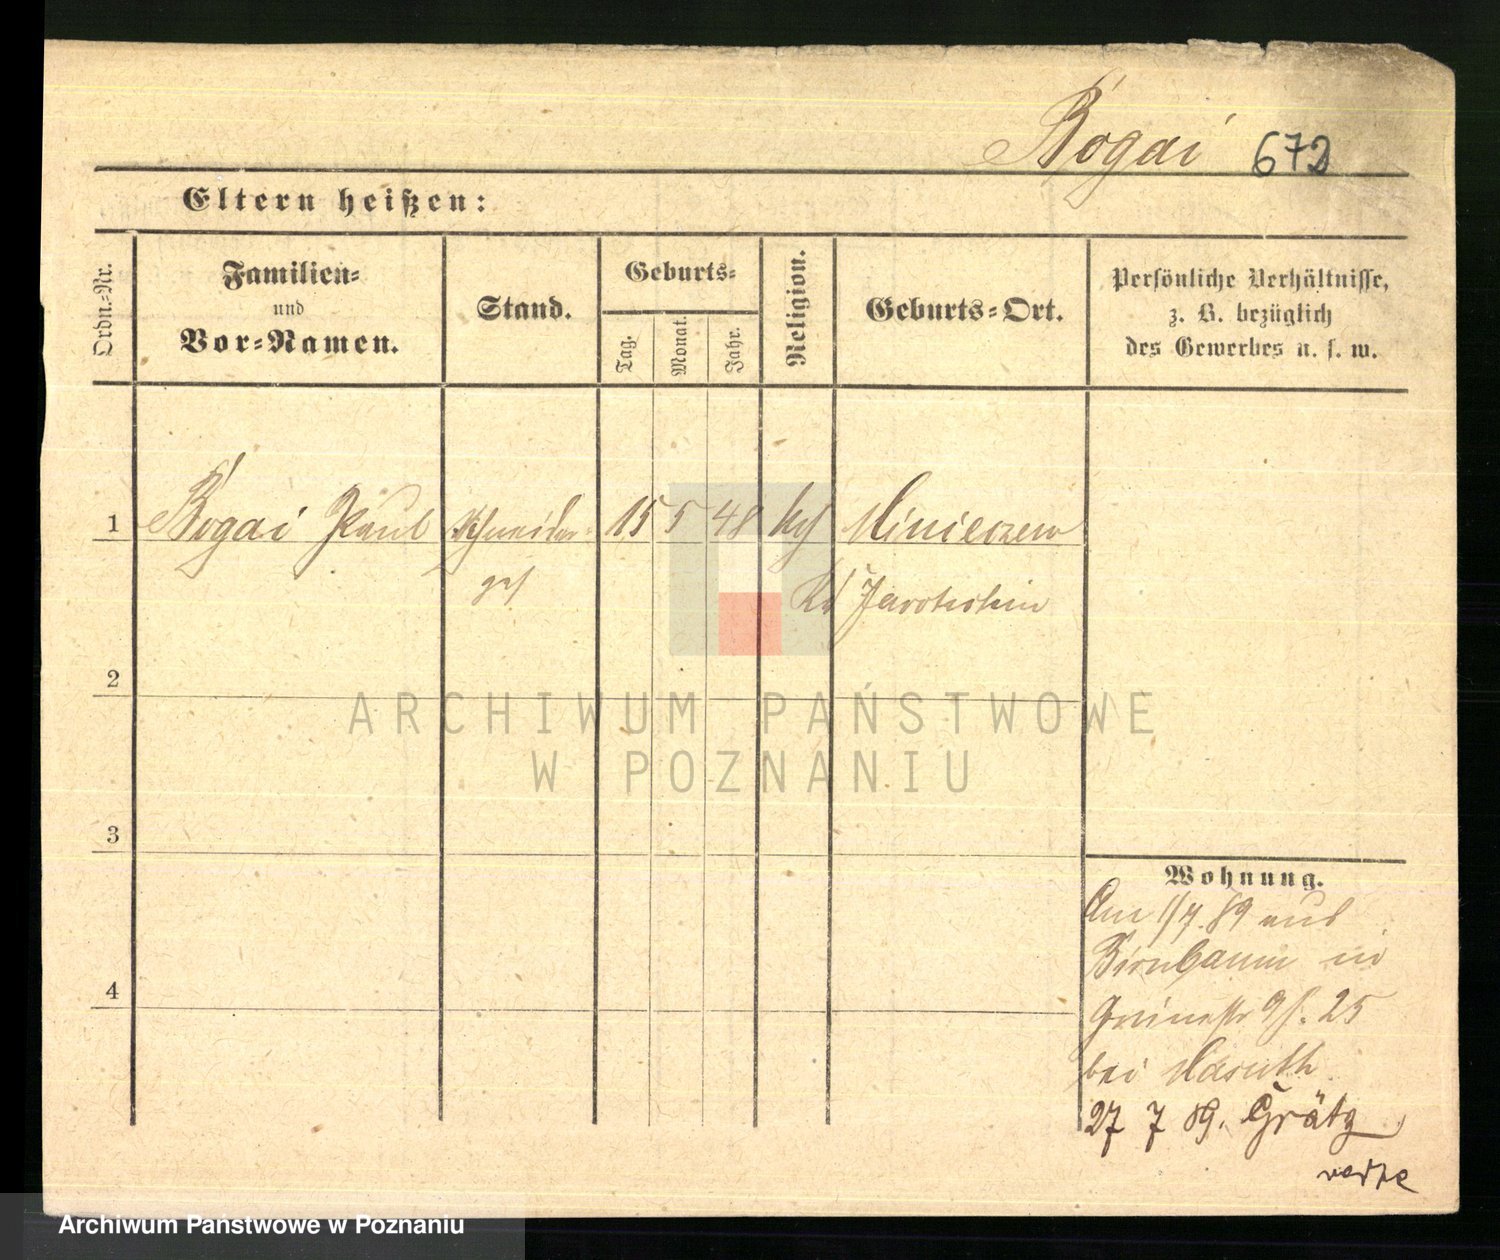 Bogai 672
Eltern heißen:
Ordn.-Nr.
Familien-
und
Vor-Namen.
Stand.
Geburts-
Tag.
Monat.
Jahr.
Religion.
Geburts-Ort.
Persönliche Verhältnisse,
z. B. bezüglich
des Gewerbes u. s. w.
1 Bogai Paul Schneider 15 5 48 Minieczew
ges Kr Jarotschin
2
3
4
Wohnung.
Am 1/7.89 aus
Birnbaum in
Grünestr 25
bei Masuth
27 7 89. Grätz
ARCHIWUM PAŃSTWOWE
W POZNANIU
Archiwum Państwowe w Poznaniu